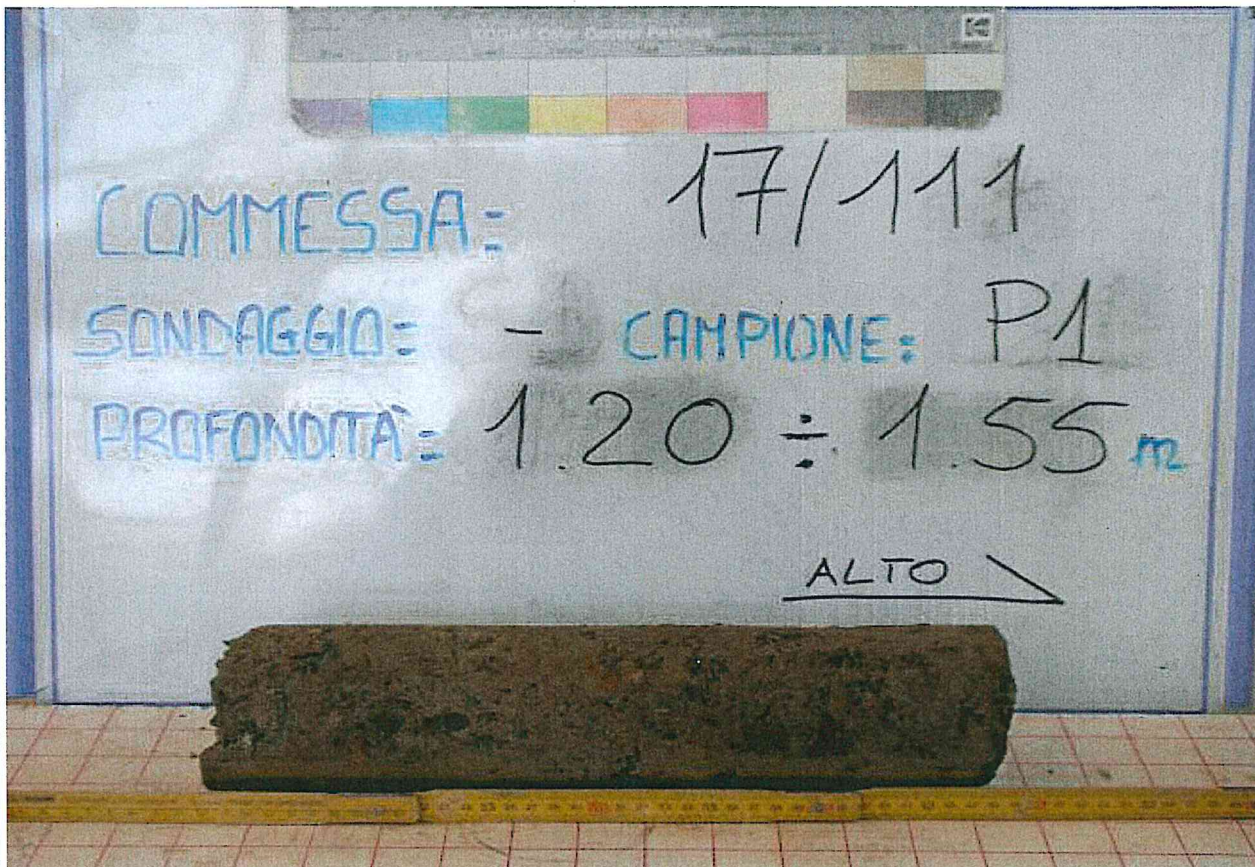 KODAK Color Control Patches
COMMESSA: 17/111
SONDAGGIO: - CAMPIONE: P1
PROFONDITÀ: 1.20 ÷ 1.55 m
ALTO